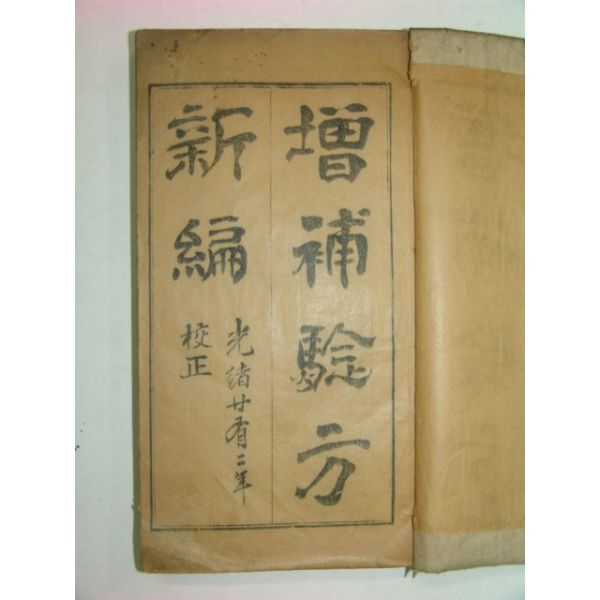 增補験方
新編
光緒廿有二年
校正